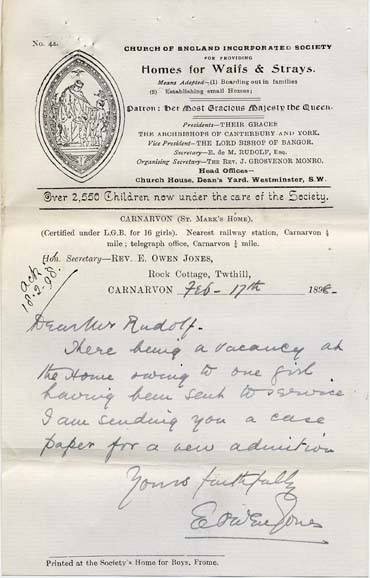 No. 44.
CHURCH OF ENGLAND INCORPORATED SOCIETY
FOR PROVIDING
Homes for Waifs & Strays.
Means Adopted—(1) Boarding out in families
(2) Establishing small Homes;
Patron: Her Most Gracious Majesty the Queen.
Presidents—THEIR GRACES
THE ARCHBISHOPS OF CANTERBURY AND YORK.
Vice President—THE LORD BISHOP OF BANGOR.
Secretary—E. de M. RUDOLF, Esq.
Organising Secretary—THE REV. J. GROSVENOR MONRO.
Head Offices—
Church House, Dean's Yard, Westminster, S.W.
Over 2,550 Children now under the care of the Society.
CARNARVON (ST. MARK'S HOME).
(Certified under L.G.B. for 16 girls). Nearest railway station, Carnarvon ¼
mile; telegraph office, Carnarvon ¼ mile.
Hon. Secretary—REV. E. OWEN JONES,
Rock Cottage, Twthill,
ack
18.2.98.
CARNARVON Feb- 17th 1898-
Dear Mr Rudolf-
There being a vacancy at
the Home owing to one girl
having been sent to service
I am sending you a case
paper for a new admition
Yours faithfully
E Owen Jones
Printed at the Society's Home for Boys, Frome.